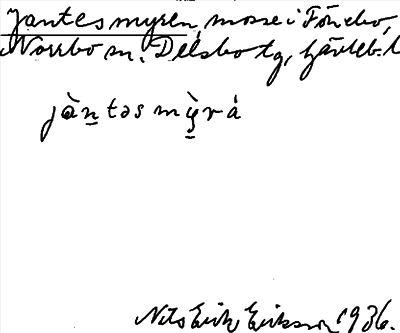 Jantesmyren, mosse i Fönebo,
Norrbo sn. Delsbo tg, Gävleb. l
jàntəs mỳrá
Nils Erik Eriksson 1936.